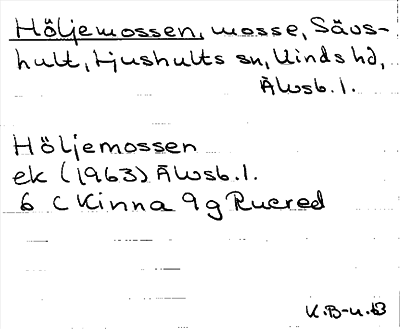 Höljemossen, mosse, Sävs-
hult, Ljushults sn, Kinds hd,
Älvsb. l.
Höljemossen
ek (1963) Älvsb. l.
6 C Kinna 9g Rucred
K.B-n.63